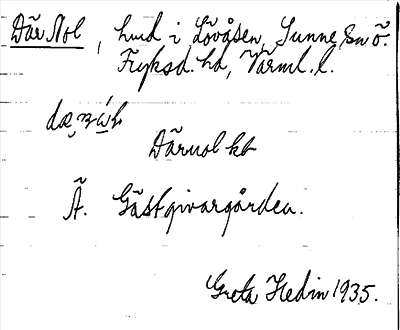 Där Nol, hmd i Lövåsen, Sunne sn Ö.
Fryksd. hd, Värml. l.
Därnol kb
Ä. Gästgivargården.
Greta Hedin 1935.